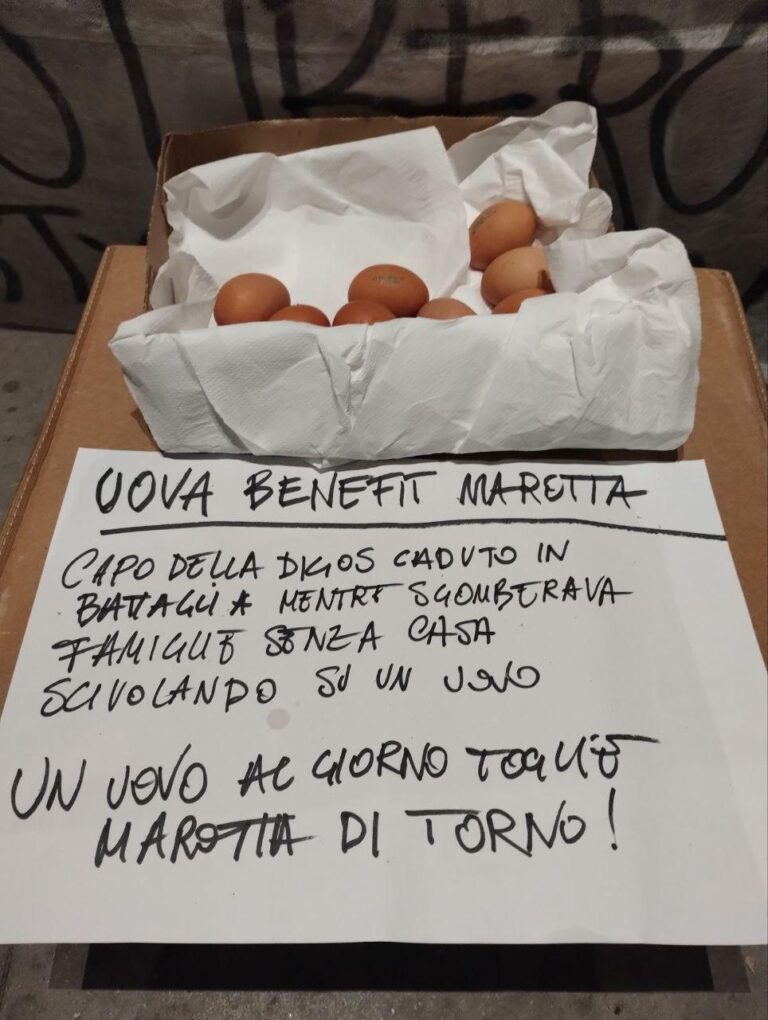 UOVA BENEFIT MAROTTA
CAPO DELLA DIGOS CADUTO IN
BATTAGLIA MENTRE SGOMBERAVA
FAMIGLIE SENZA CASA
SCIVOLANDO SU UN UOVO
UN UOVO AL GIORNO TOGLIE
MAROTTA DI TORNO!